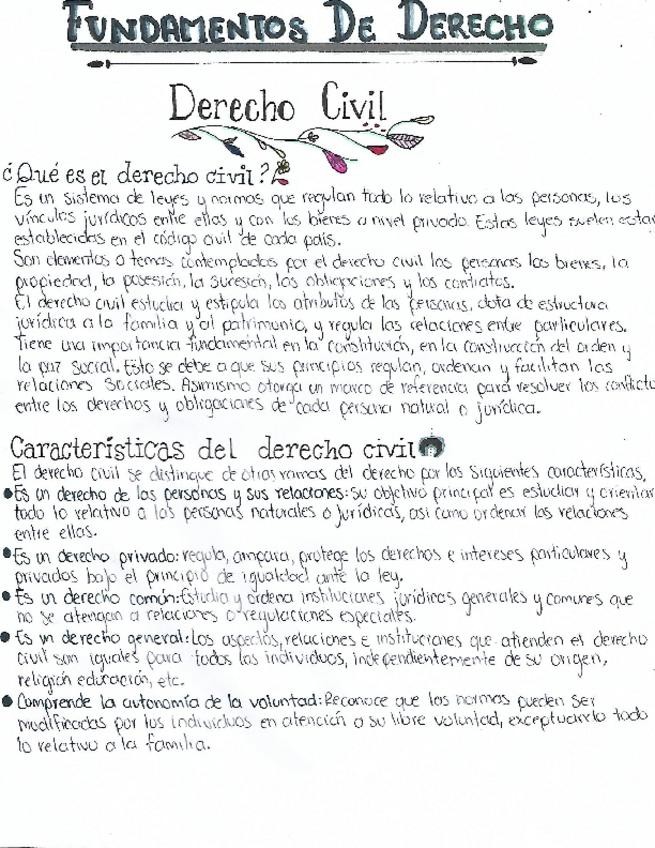 FUNDAMENTOS DE DERECHO
Derecho Civil
¿Qué es el derecho civil?
Es un sistema de leyes y normas que regulan todo lo relativo a las personas, los
vínculos jurídicos entre ellas y con los bienes a nivel privado. Estas leyes suelen estar
establecidas en el código civil de cada país.
Son elementos o temas contemplados por el derecho civil las personas los bienes, la
propiedad, la posesión, la sucesión, las obligaciones y los contratos.
El derecho civil estudia y estipula los atributos de las personas, dota de estructura
jurídica a la familia y al patrimonio, y regula las relaciones entre particulares.
Tiene una importancia fundamental en la constitución, en la construcción del orden y
la paz social. Esto se debe a que sus principios regulan, ordenan y facilitan las
relaciones sociales. Asimismo otorga un marco de referencia para resolver los conflicto
entre los derechos y obligaciones de cada persona natural o jurídica.
Características del derecho civil
El derecho civil se distingue de otras ramas del derecho por las siguientes características,
• Es un derecho de las personas y sus relaciones: Su objetivo principal es estudiar y orientar
todo lo relativo a las personas naturales o jurídicas, así como ordenar las relaciones
entre ellas.
• Es un derecho privado: regula, ampara, protege los derechos e intereses particulares y
privados bajo el principio de igualdad ante la ley.
• Es un derecho común: Estudia y ordena instituciones jurídicas generales y comunes que
no se atengan a relaciones o regulaciones especiales.
• Es un derecho general: Los aspectos, relaciones e instituciones que atienden el derecho
civil son iguales para todos los individuos, independientemente de su origen,
religión educación, etc.
• Comprende la autonomía de la voluntad: Reconoce que las normas pueden ser
modificadas por los individuos en atención a su libre voluntad, exceptuando todo
lo relativo a la familia.